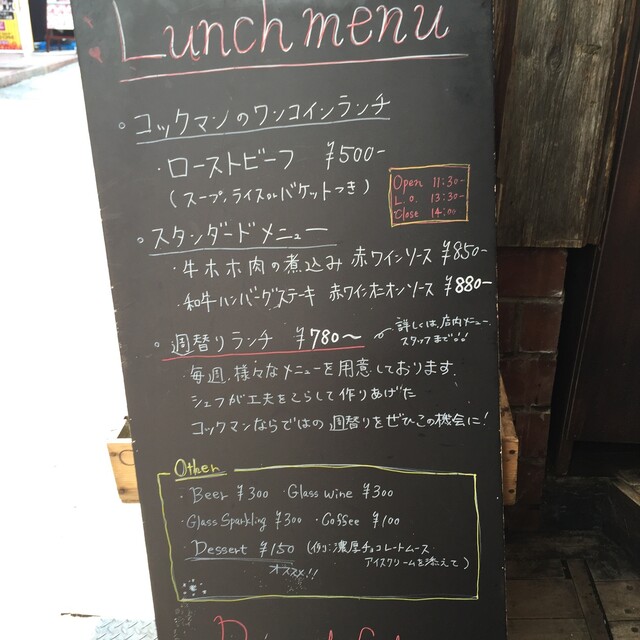 Lunch menu
。コックマンのワンコインランチ
・ローストビーフ ¥500-
(スープ、ライスorバケットつき)
Open 11:30-
L.o. 13:30-
Close 14:00
。スタンダードメニュー
・牛ホホ肉の煮込み 赤ワインソース ¥850-
・和牛ハンバーグステーキ 赤ワインオニオンソース ¥880-
。週替りランチ ¥780〜
詳しくは、店内メニュー、
スタッフまで!!
・毎週、様々なメニューを用意しております。
シェフが工夫をこらして作りあげた
コックマンならではの週替りをぜひこの機会に!
Other
・Beer ¥300 ・Glass wine ¥300
・Glass Sparkling ¥300 ・Coffee ¥100
・Dessert ¥150 (例:濃厚チョコレートムース
アイスクリームを添えて)
オススメ!!